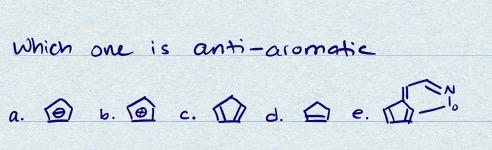 Which one is anti-aromatic
a. ⊖ b. ⊕ c. d. e. N O